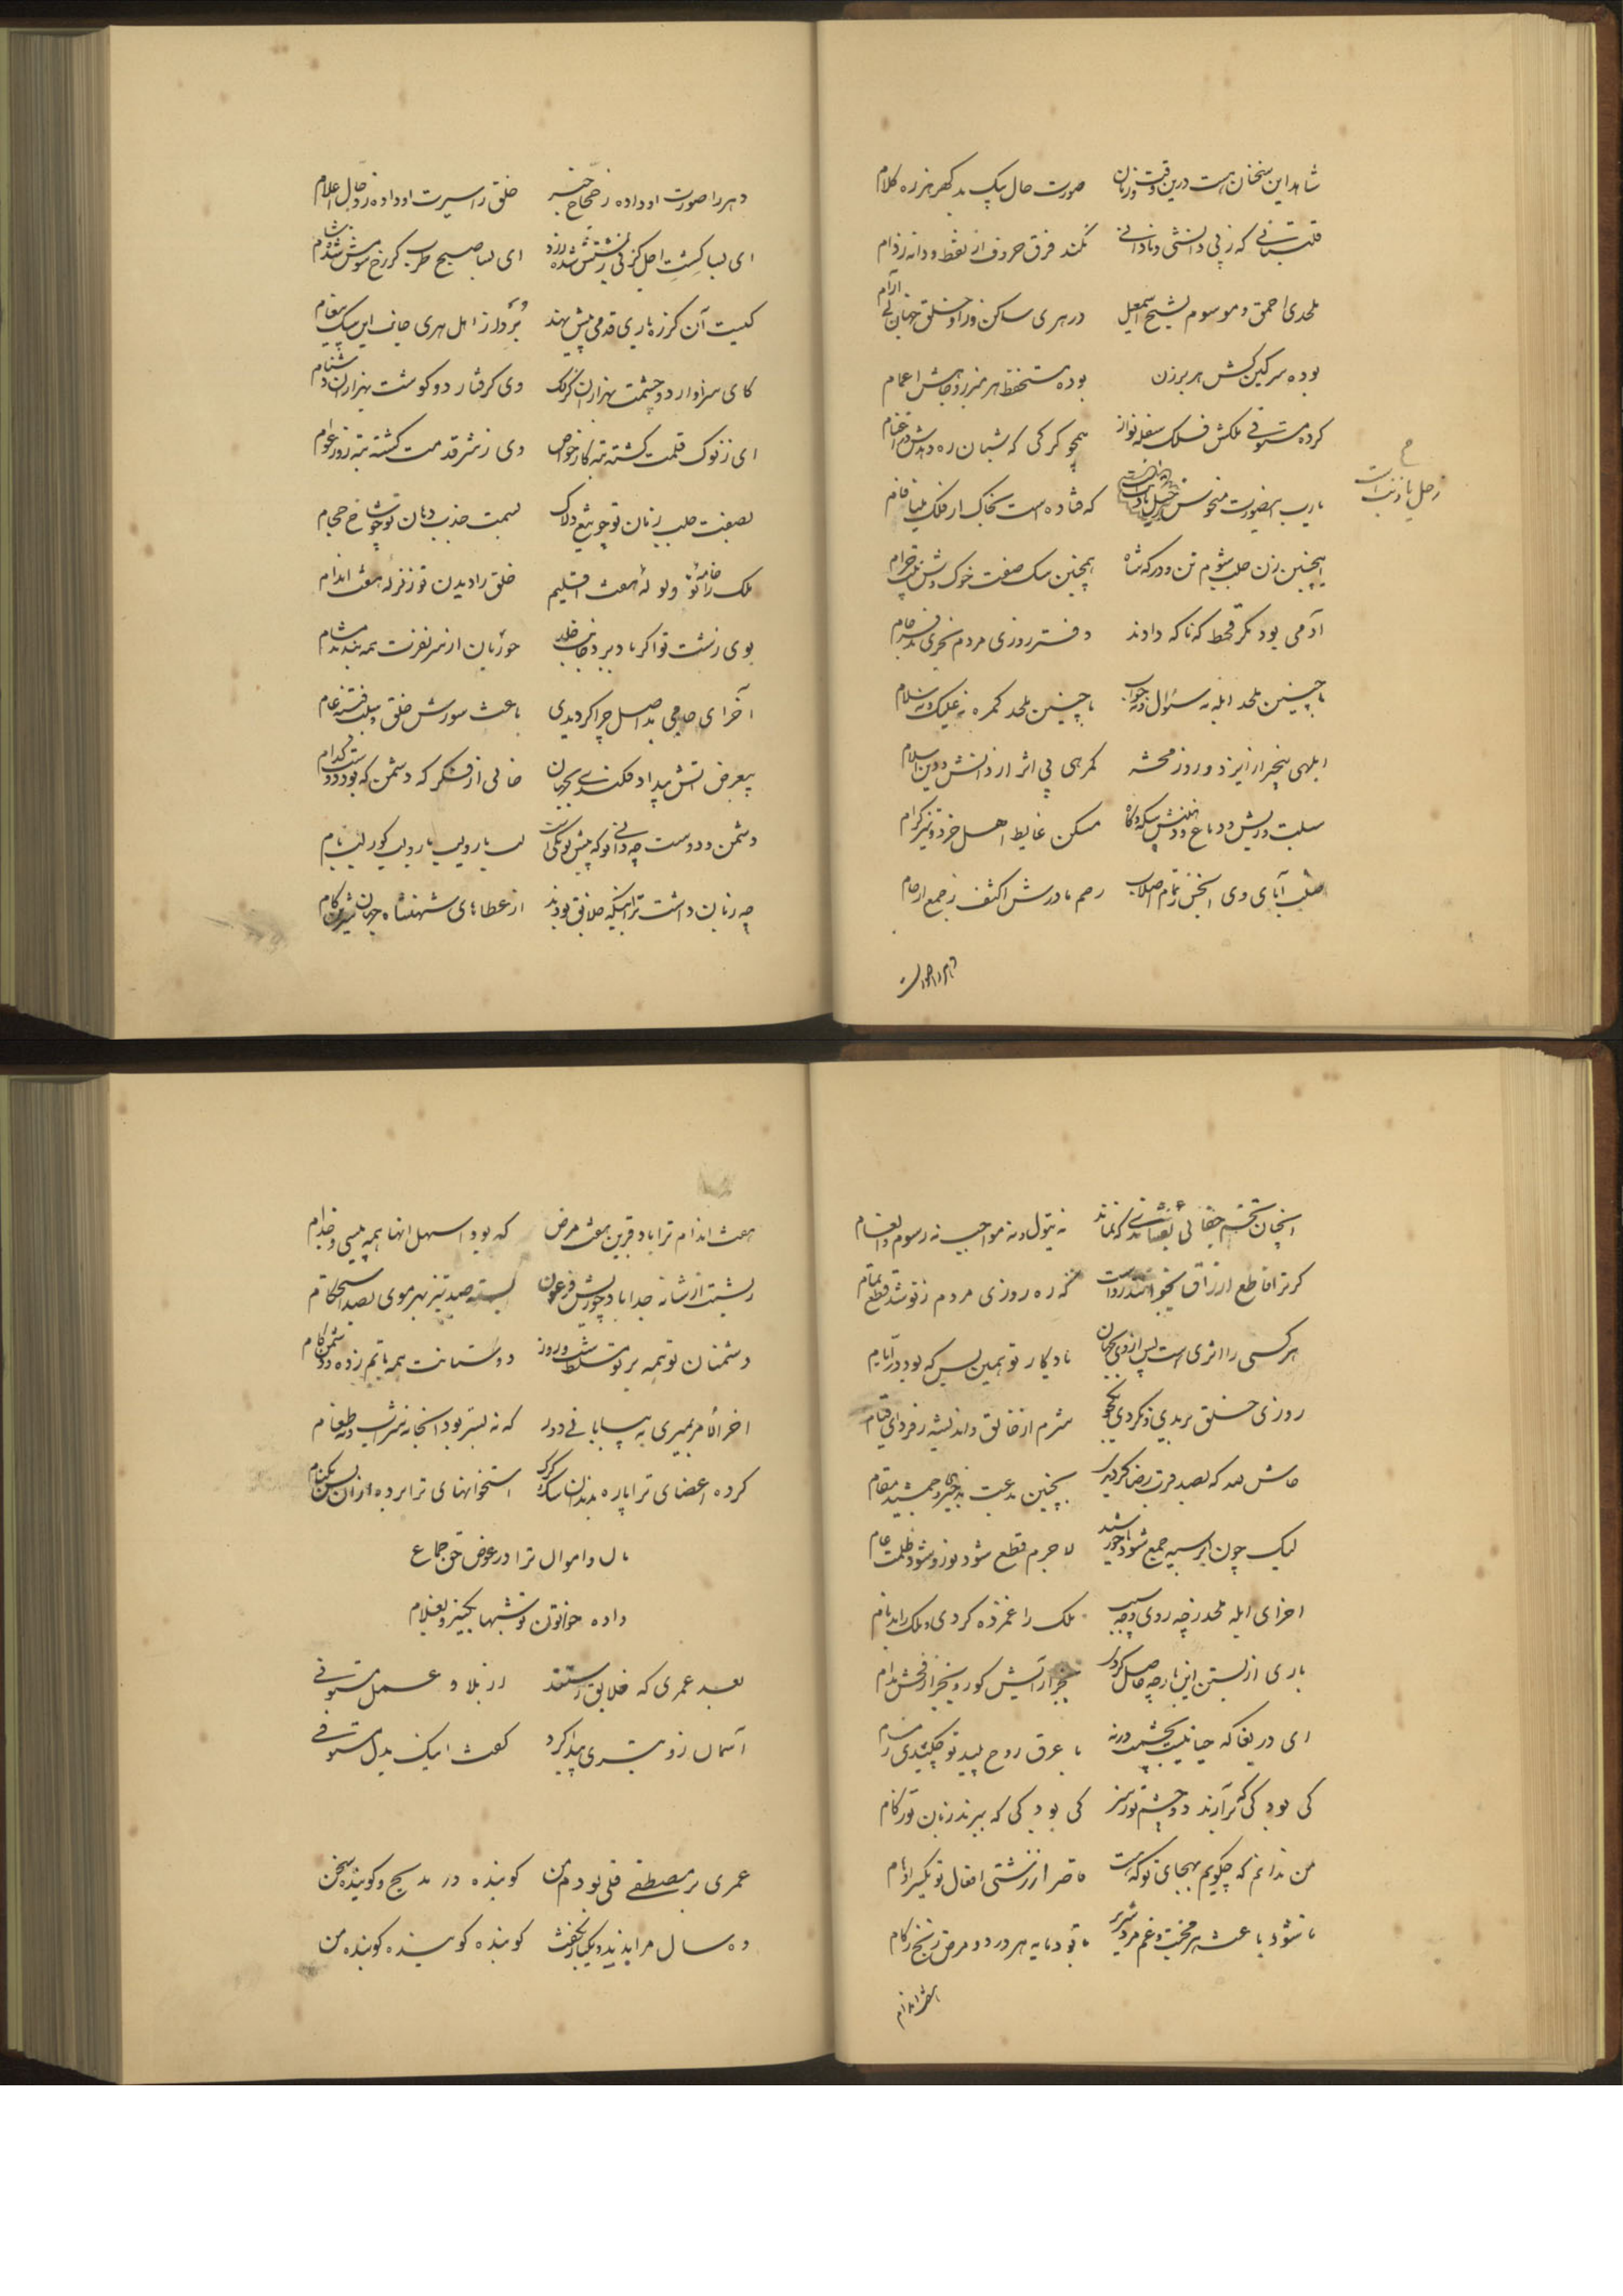 شاهد این سخنان است درین وقت و زمان صورت حال یک بد گهر هرزه کلام
قلتبانی که ز بی دانشی و نادانی نکند فرق حروف از نقط و دانه ز دام
ملحدی احمق و موسوم بشیخ اسمعیل در هری ساکن و زو خلق جهان بی آرام
بوده سرگین کش هر برزن بوده مستحفظ هر مزبر و جایش اعمام
کرده مستوفی ملکش فلک سفله نواز همچو گرگی که شبان ره دهدش در اغنام
یارب اینصورت منحوس که فتاده است بخاک از فلک مینا فام
زحل یا ذنب است
اینچنین زن جلب شوم تن و درگه شاه همچنین سگ صفت خوک وش
آدمی بود مگر قحط که ناگه دادند دفتر روزی مردم بخری
با چنین ملحد ابله نه سئوال و نه جواب با چنین ملحد گمره نه علیک و نه سلام
ابلهی بیخبر از ایزد و روز محشر گمرهی بی اثر از دانش و دین اسلام
سبلت و ریش و دماغ و دهنش مسکن غایط اهل خرد و نیز کرام
صلب آبای وی انجس ز تمام اصلاب رحم مادرش اکثف ز جمیع ارحام
دهر را صورت
دهر را صورت او داده ز ضحاک خبر خلق را سیرت او داده ز دجال اعلام
ای بسا کشت اجل کز نی ای بسا صبح طرب کز رخ
کیست آن کز ره یاری قدمی پیش نهد برد از اهل هری جانب این سگ پیغام
کای سزاوار دو چشمت بهزاران گزلک وی گرفتار دو گوشت بهزاران دشنام
ای ز نوک قلمت گشته تبه کار خواص وی ز شر قدمت گشته تبه روز عوام
بصفت جلب زنان تو چو تیغ دلاک بسمت جذب دهان تو چو شاخ حجام
ملک را خامهٔ تو ولولهٔ هفت اقلیم خلق را دیدن تو زلزلهٔ هفت اندام
بوی زشت تو اگر باد برد جانب خلد حوریان از سر نفرت همه بندند مشام
آخر ای حاجی بد اصل چرا گردیدی باعث شورش خلق و سبب فتنهٔ عام
بیغرض آتش بیداد فکندی بجهان خالی از فکر که دشمن که بود دوست کدام
دشمن و دوست چه دانی تو که پیش تو یکی است لب یار و لب نار و لب گور و لب بام
چه زیان داشت ترا اینکه خلایق بودند از عطاهای شهنشاه جهان شیرین کام
آنچنان تخم جفا نی که نماند نه تیول و نه مواجب نه رسوم و انعام
گر ترا قاطع ارزاق بخوانند رواست که ره روزی مردم ز تو شد قطع تمام
هر کسی را اثری است پس از وی بجهان یادگار تو همین بس که بود در ایام
روزی خلق بریدی و نکردی شرم از خالق و اندیشه ز فردای قیام
حاش لله که بصد قرن رضا گردید بچنین بدعت بد خسرو جمشید مقام
لیک چون ابر سیه جمع شود با خورشید لاجرم قطع شود نور و شود ظلمت عام
آخر ای ابله ملحد ز چه روی و چه سبب ملک را غمزده کردی و ملک را بدنام
باری از بستن این بار چه حاصل کردی بجز آرایش گور و بجز افحش دام
ای دریغا که حیا نیست بچشمت ورنه با عرق روح پلید تو چکیدی ز مسام
کی بود کی که برآرند دو چشم تو ز سر کی بود کی که ببرند زبان تو ز کام
من ندانم که چگویم بهجای تو که هست قاصر از زشتی افعال تو یکسر اوهام
تا شود باعث هر محنت و غم مرد شریر تا بود مایه هر درد و مرض رنج زکام
هفت اندام
هفت اندام ترا باد قرین هفت مرض که بود اسهل آنها همه پیسی و جذام
ریشت از شانه جدا باد چو ریش فرعون بسته صد تیز بهر موی بصد استحکام
دشمنان تو همه بر تو مسلط شب و روز دوستانت همه ماتم زده و دشمن کام
آخر الامر بمیری به بیابانی دور که نه بستر بود آنجا نه شراب و نه طعام
کرده اعضای ترا پاره بدندان سگ و گرگ استخوانهای ترا برده
مال و اموال ترا در عوض حق جماع
داده خواتون تو شبها بکنیز و بغلام
بعد عمری که خلایق رستند از بلا و عمل مستوفی
آسمان زو بتری پیدا کرد گفت اینک بدل مستوفی
عمری بر مصطفی قلی بودم من گوینده در مدیح و گوینده سخن
ده سال مرا بدید و یکبار نگفت گوینده گوینده گوینده من